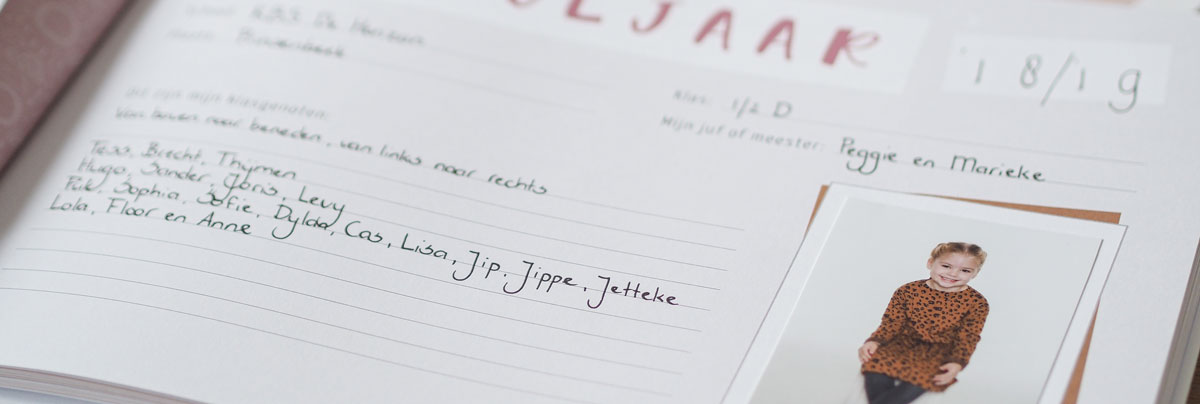 OLJAAR
'18/'19
De
Klas: 1/2 D
Mijn juf of meester: Peggie en Marieke
Dit zijn mijn klasgenoten:
Van boven naar beneden, van links naar rechts
Tess, Brecht, Thijmen
Hugo, Sander, Joris, Levy
Puk, Sophia, Sofie, Dylda, Cas, Lisa, Jip, Jippe, Jetteke
Lola, Floor en Anne